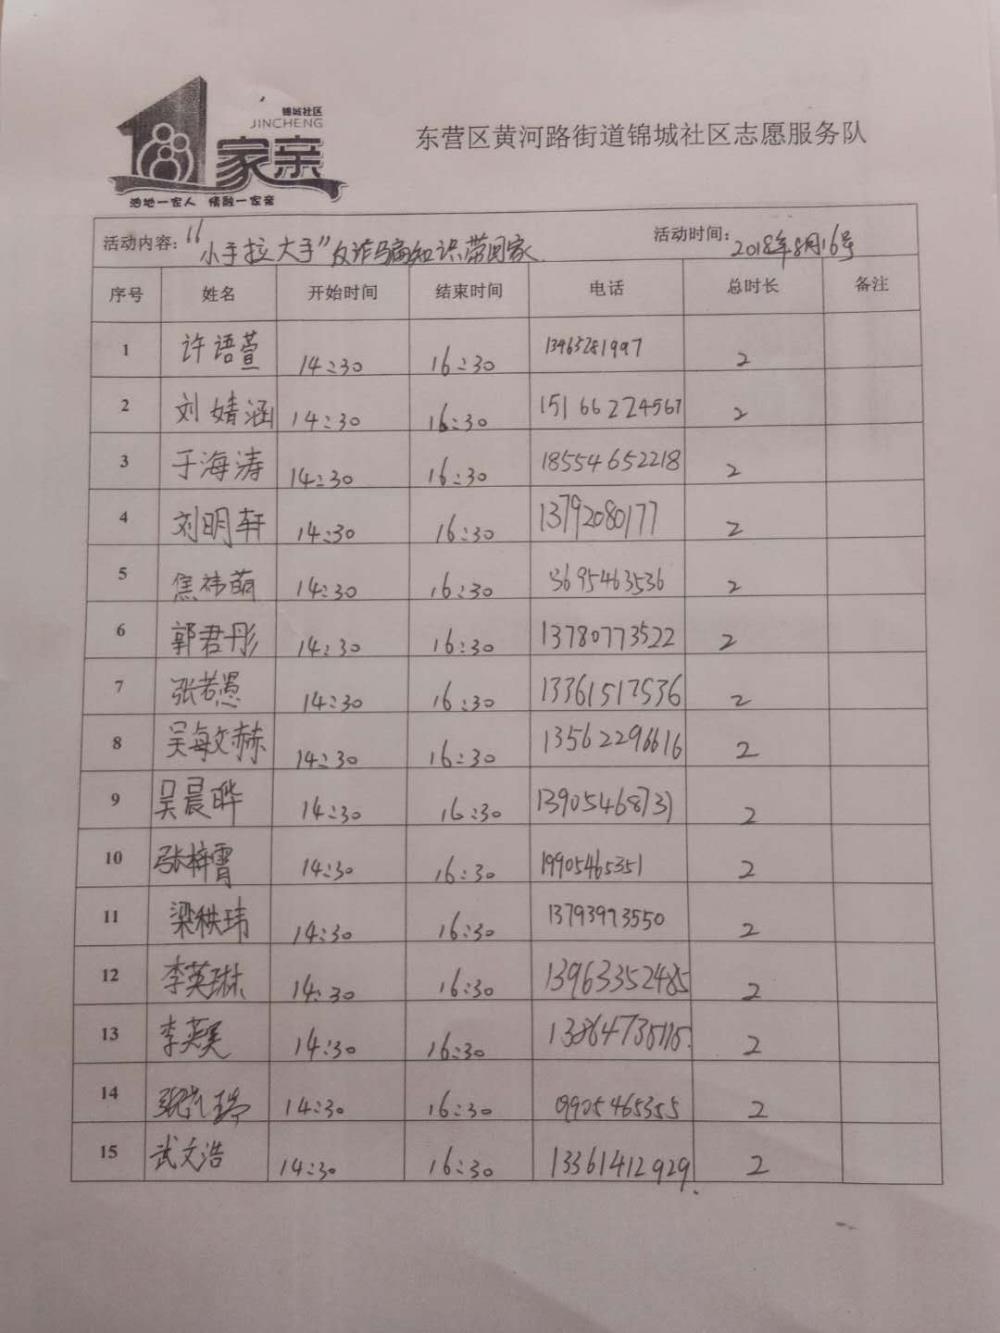 锦城社区
JINCHENG
1家亲
油地一家人 情融一家亲
东营区黄河路街道锦城社区志愿服务队
活动内容：“小手拉大手”反诈骗知识带回家 活动时间：2018年8月16号
序号 姓名 开始时间 结束时间 电话 总时长 备注
1 许语萱 14:30 16:30 13465281997 2
2 刘婧涵 14:30 16:30 15166274567 2
3 于海涛 14:30 16:30 18554652218 2
4 刘明轩 14:30 16:30 13792080177 2
5 焦祎萌 14:30 16:30 2
6 郭君彤 14:30 16:30 13780773522 2
7 张若愚 14:30 16:30 13361517536 2
8 吴敏文赫 14:30 16:30 13562296616 2
9 吴晨晔 14:30 16:30 13905468731 2
10 张梓霄 14:30 16:30 19905465351 2
11 梁秩玮 14:30 16:30 13793973550 2
12 李英琳 14:30 16:30 13963352485 2
13 李英昊 14:30 16:30 2
14 14:30 16:30 2
15 武文浩 14:30 16:30 13361412929 2